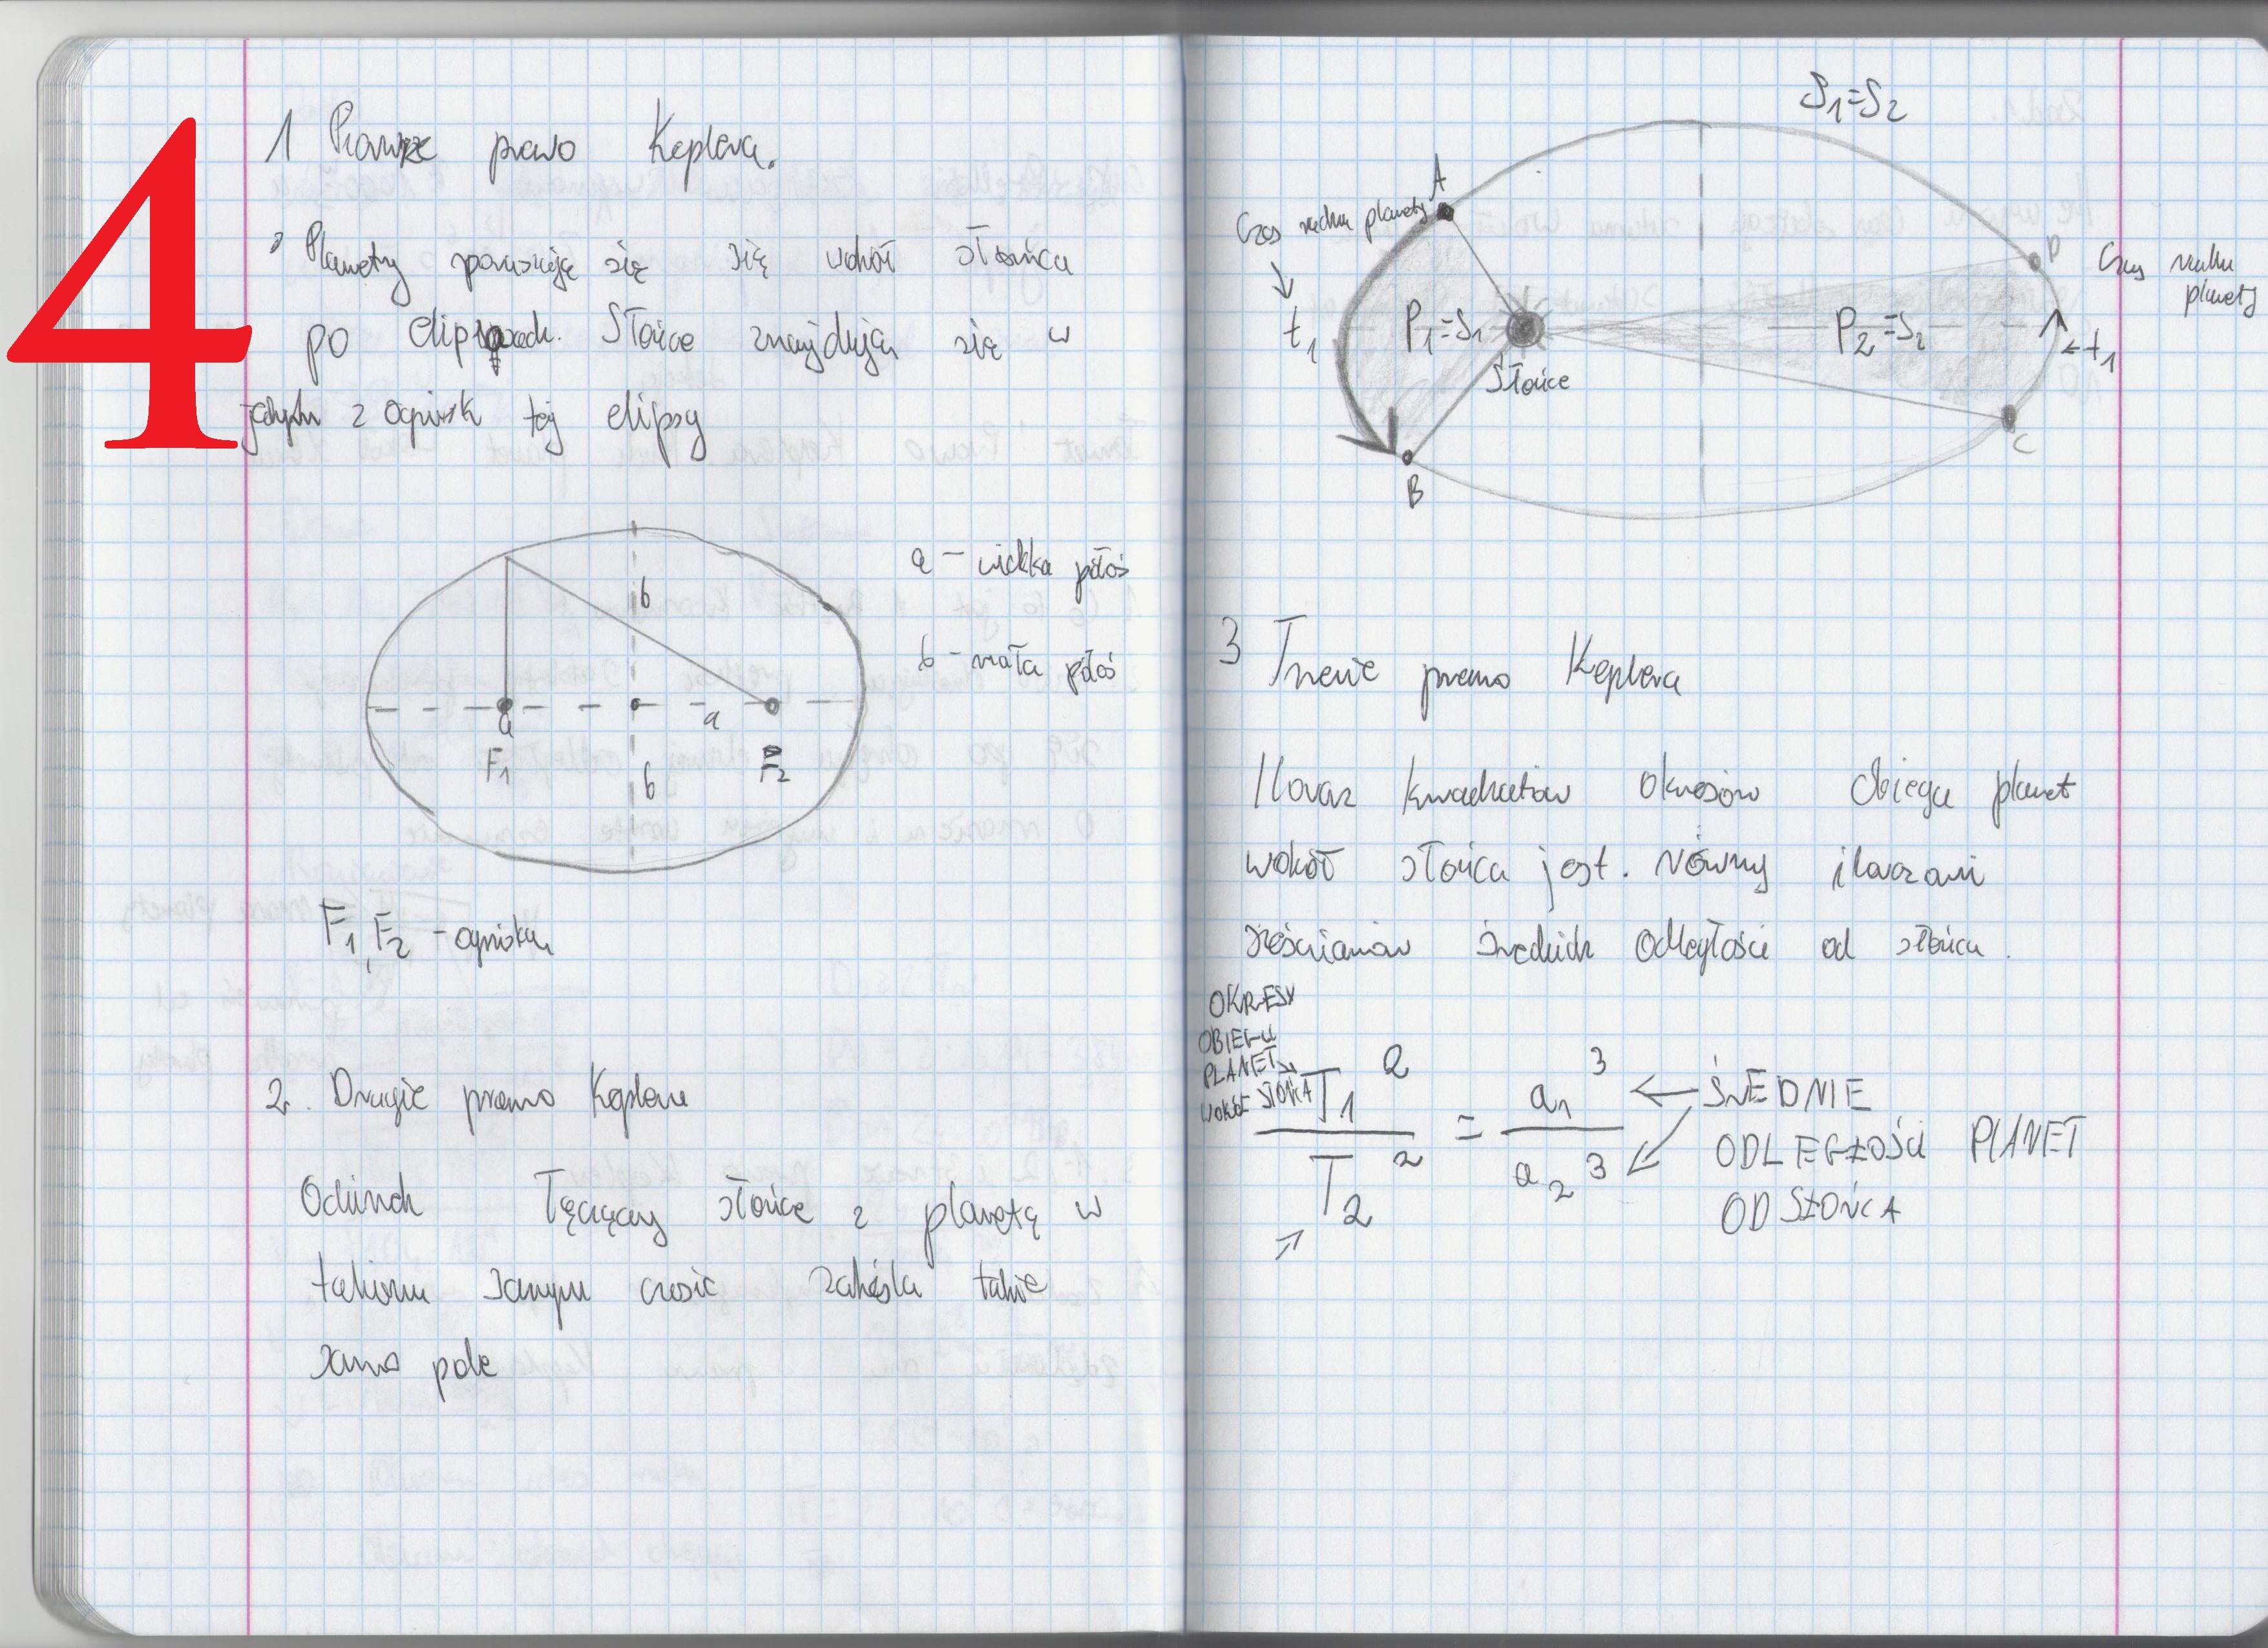 4
1 Pierwsze prawo Keplera.
Planety poruszają się się wokół słońca
po elipsach. Słońce znajduje się w
jednym z ognisk tej elipsy
a - wielka półoś
b
b - mała półoś
a a
F1 F2
b
F1, F2 - ogniska
2. Drugie prawo Keplera
Odcinek łączący słońce z planetą w
takim samym czasie zakreśla takie
samo pole
S1=S2
A
Czas ruchu planety
D
Czas ruchu
planety
t1
P1=S1
P2=S2
t1
Słońce
B
C
3 Trzecie prawo Keplera
Iloraz kwadratów okresów obiegu planet
wokół słońca jest. równy ilorazowi
sześcianów średnich odległości od słońca.
OKRESY
OBIEGU
PLANET
WOKÓŁ SŁOŃCA
T1² / T2² = a1³ / a2³
ŚREDNIE
ODLEGŁOŚCI PLANET
OD SŁOŃCA